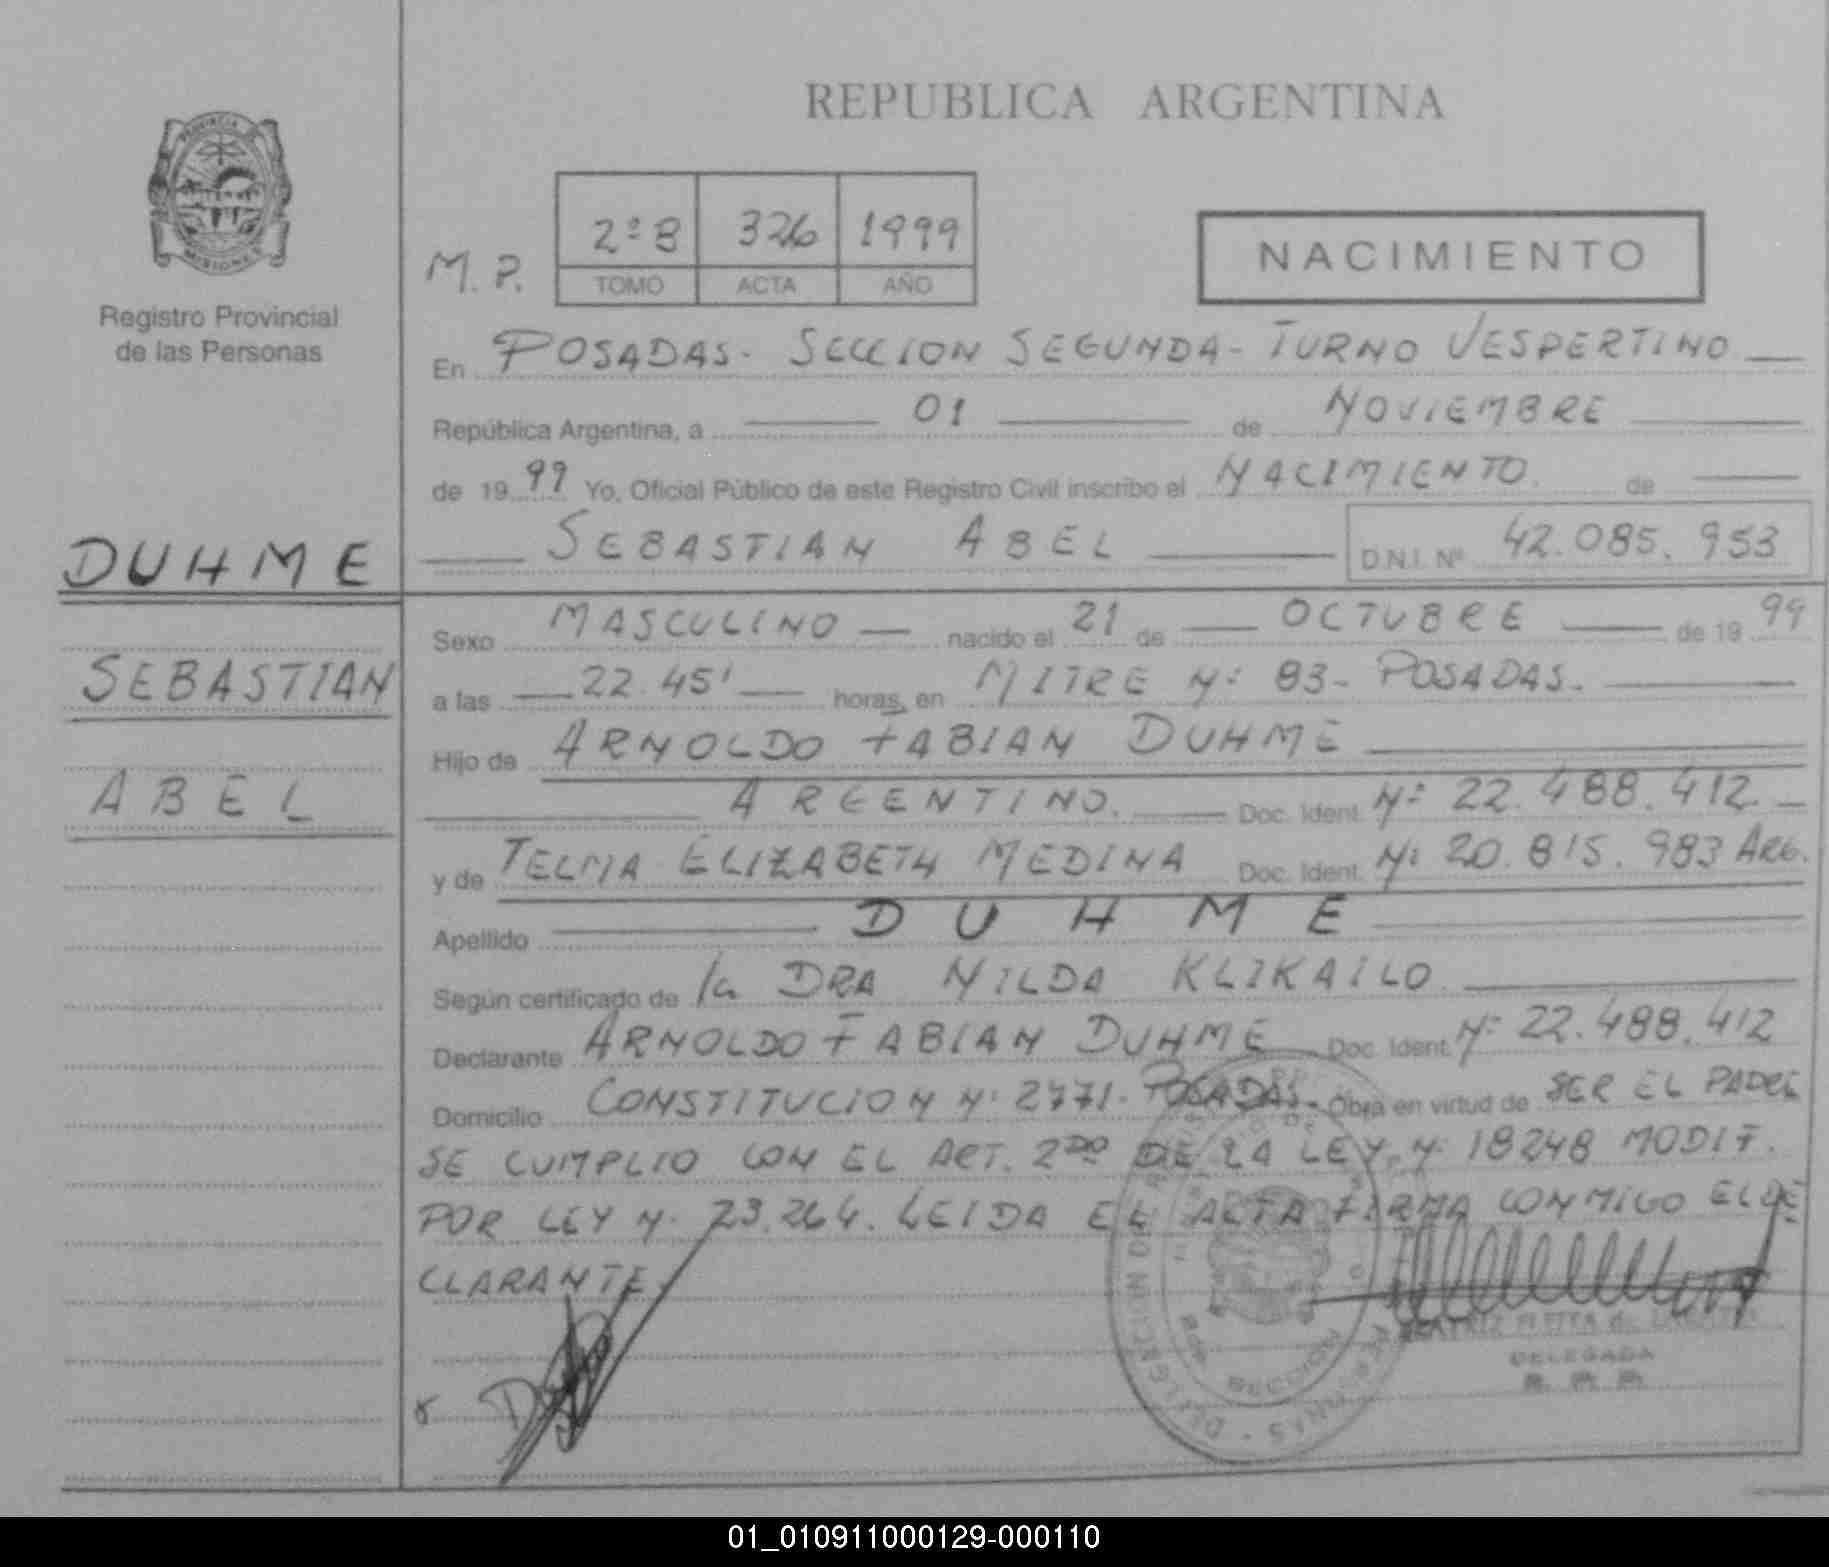 REPUBLICA ARGENTINA
PROVINCIA DE
MISIONES
Registro Provincial
de las Personas
M. P.
2º B 326 1999
TOMO ACTA AÑO
NACIMIENTO
En POSADAS- SECCION SEGUNDA- TURNO VESPERTINO
República Argentina, a 01 de NOVIEMBRE
de 1999 Yo, Oficial Público de este Registro Civil inscribo el NACIMIENTO. de
SEBASTIAN ABEL D.N.I. Nº 42.085.953
DUHME
SEBASTIAN
ABEL
Sexo MASCULINO nacido el 21 de OCTUBRE de 1999
a las 22.45' horas, en MITRE Nº 83- POSADAS.
Hijo de ARNOLDO FABIAN DUHME
ARGENTINO. Doc. Ident. Nº 22.488.412
y de TELMA ELIZABETH MEDINA Doc. Ident. Nº 20.815.983 ARG.
Apellido DUHME
Según certificado de la DRA NILDA KLIKAILO
Declarante ARNOLDO FABIAN DUHME Doc. Ident. Nº 22.488.412
Domicilio CONSTITUCION Nº 2771. POSADAS. Obra en virtud de SER EL PADRE
SE CUMPLIO CON EL ART. 2DO DE LA LEY Nº 18248 MODIF.
POR LEY Nº 23.264. LEIDA EL ACTA FIRMA CONMIGO EL DE
CLARANTE.
DELEGACION DE
PERSONAS
SECCION
BEATRIZ
DELEGADA
01_010911000129-000110